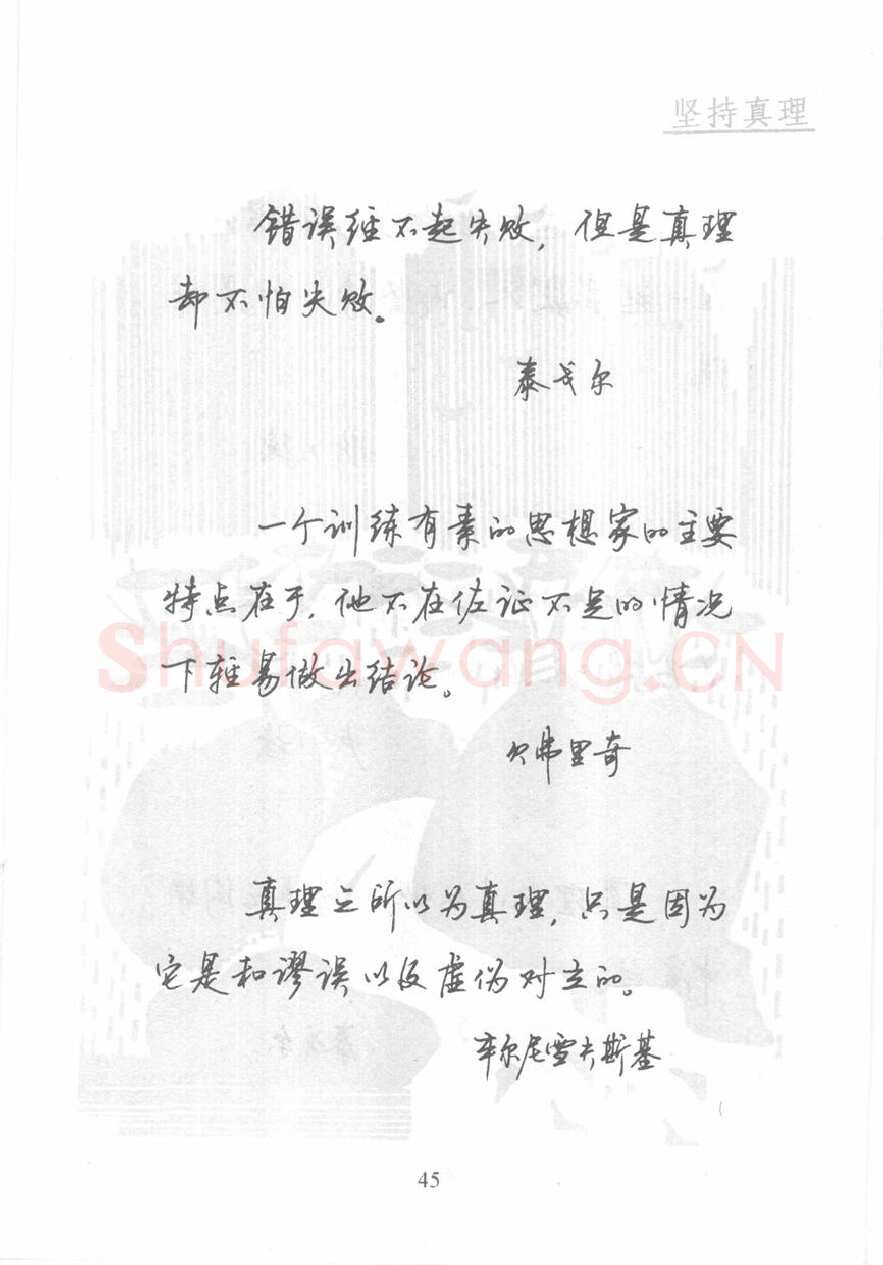 坚持真理
错误经不起失败，但是真理
却不怕失败。
泰戈尔
一个训练有素的思想家的主要
特点在于，他不在佐证不足的情况
下轻易做出结论。
Shufawang.CN
欠弗里奇
真理之所以为真理，只是因为
它是和谬误以及虚伪对立的。
车尔尼雪夫斯基
45